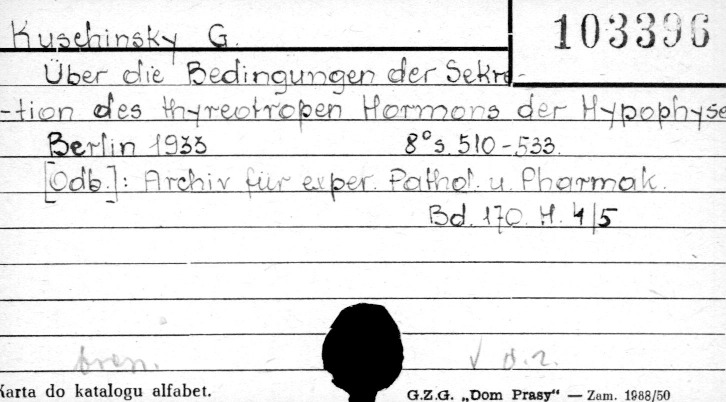 Kuschinsky G.
103396
Über die Bedingungen der Sekre-
-tion des thyreotropen Hormons der Hypophyse
Berlin 1933 8° s. 510-533.
[Odb.]: Archiv für exper. Pathol. u. Pharmak.
Bd. 170. H. 4/5
Karta do katalogu alfabet. G.Z.G. „Dom Prasy“ — Zam. 1988/50